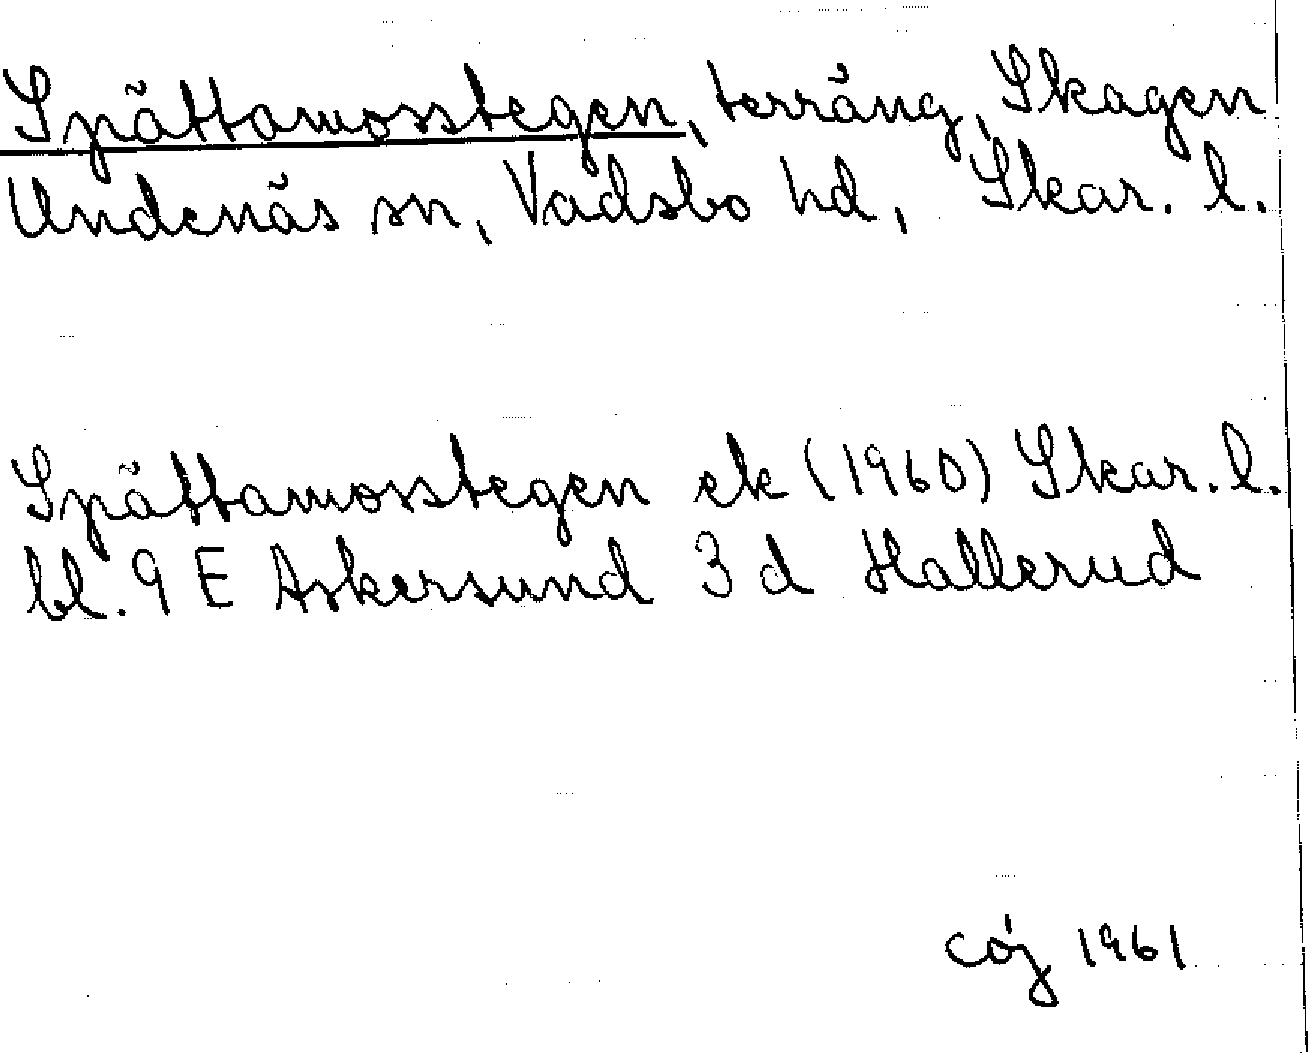 Spättamosstegen, terräng, Skagen
Undenäs sn, Vadsbo hd, Skar. l.
Spättamosstegen ek (1960) Skar. l.
bl. 9 E Askersund 3 d Hallerud
cój 1961